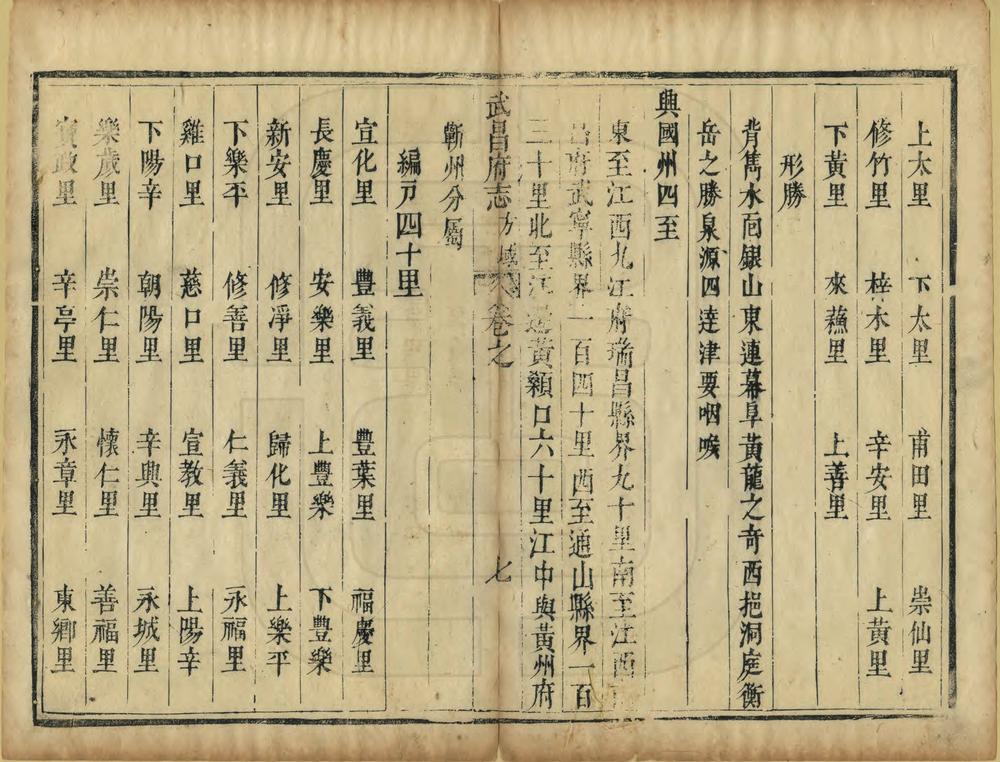 上太里 下太里 甫田里 崇仙里
修竹里 梓木里 辛安里 上黃里
下黃里 來蘓里 上善里
形勝
背雋水面銀山東連幕阜黃龍之奇西挹洞庭衡
岳之勝泉源四達津要咽喉
興國州四至
東至江西九江府瑞昌縣界九十里南至江西
昌府武寧縣界一百四十里西至通山縣界一百
三十里北至江邉黃顙口六十里江中與黃州府
武昌府志 方域 卷之 七
蘄州分屬
編戸四十里
宣化里 豐義里 豐葉里 福慶里
長慶里 安樂里 上豐樂 下豐樂
新安里 修凈里 歸化里 上樂平
下樂平 修善里 仁義里 永福里
雞口里 慈口里 宣教里 上陽辛
下陽辛 朝陽里 辛興里 永城里
樂歲里 崇仁里 懷仁里 善福里
政里 辛亭里 永章里 東鄉里